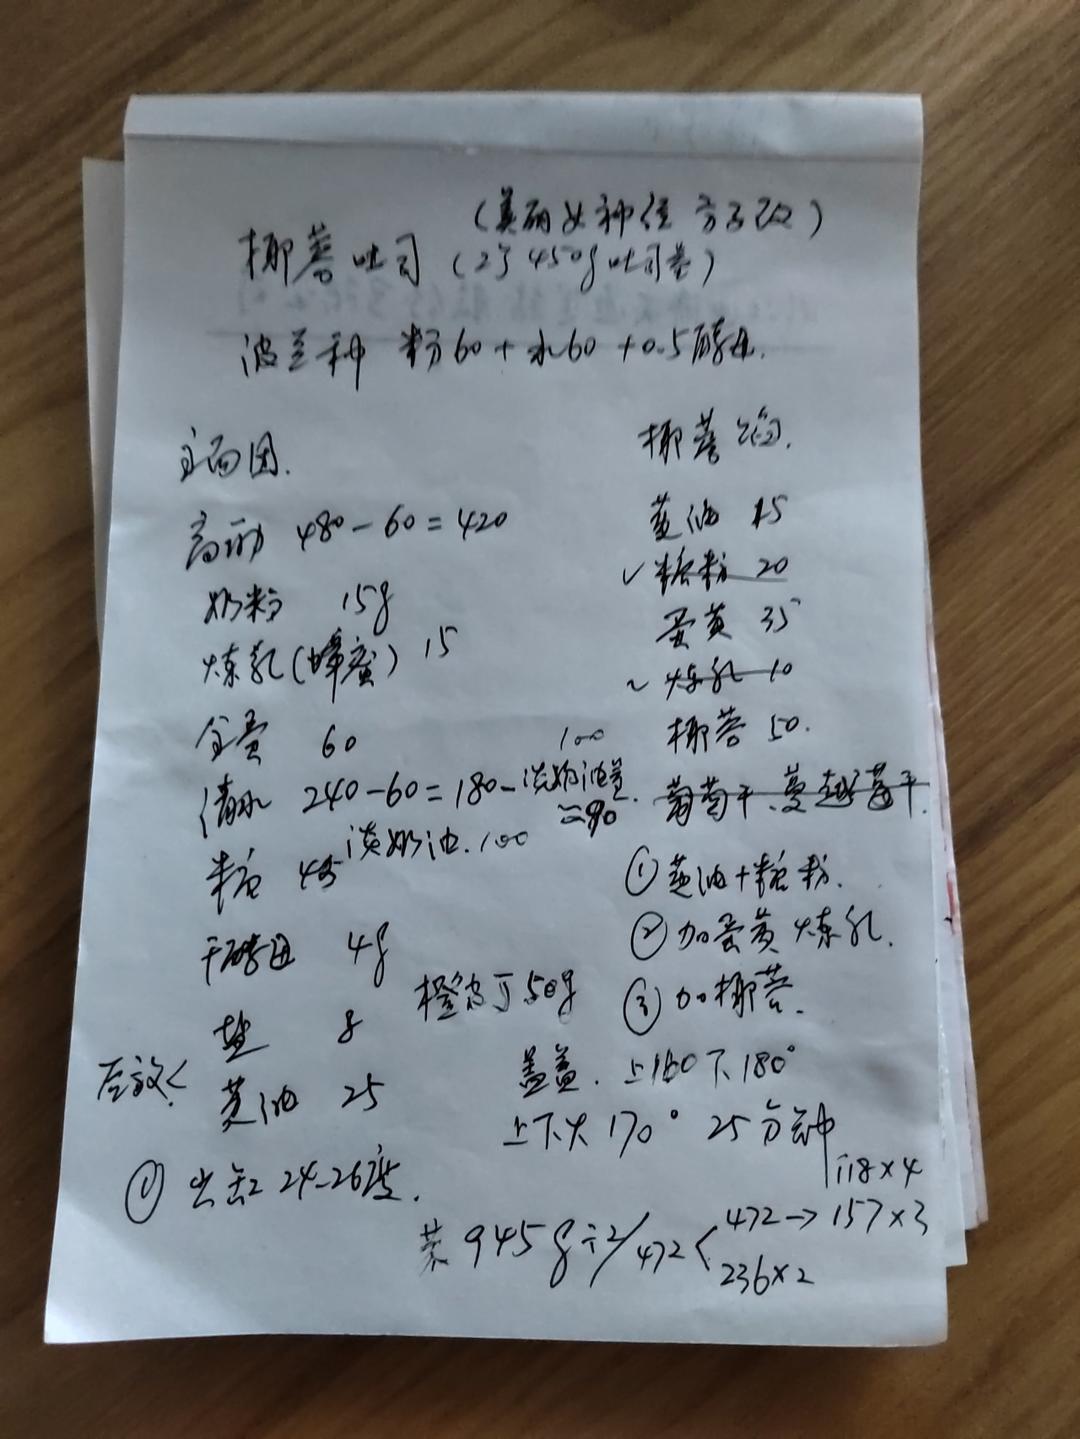 (美丽女神经 方子改)
椰蓉吐司(2个450g吐司卷)
波兰种 粉60+水60+0.5酵母.
主面团.
高筋 480-60=420
奶粉 15g
炼乳(蜂蜜) 15
全蛋 60
清水 240-60=180-淡奶油量 100 ≈90
糖 45
淡奶油.100
干酵母 4g
盐 8
后放<
黄油 25
橙皮丁50g
① 出缸 24-26度.
椰蓉馅.
黄油 15
✓ 糖粉 20
蛋黄 35
~ 炼乳 10
椰蓉 50.
葡萄干、蔓越莓干.
① 黄油+糖粉.
② 加蛋黄 炼乳.
③ 加椰蓉.
盖盖. 上160下180°
上下火170° 25分钟
945g÷2/472<
118×4
472→157×3
236×2